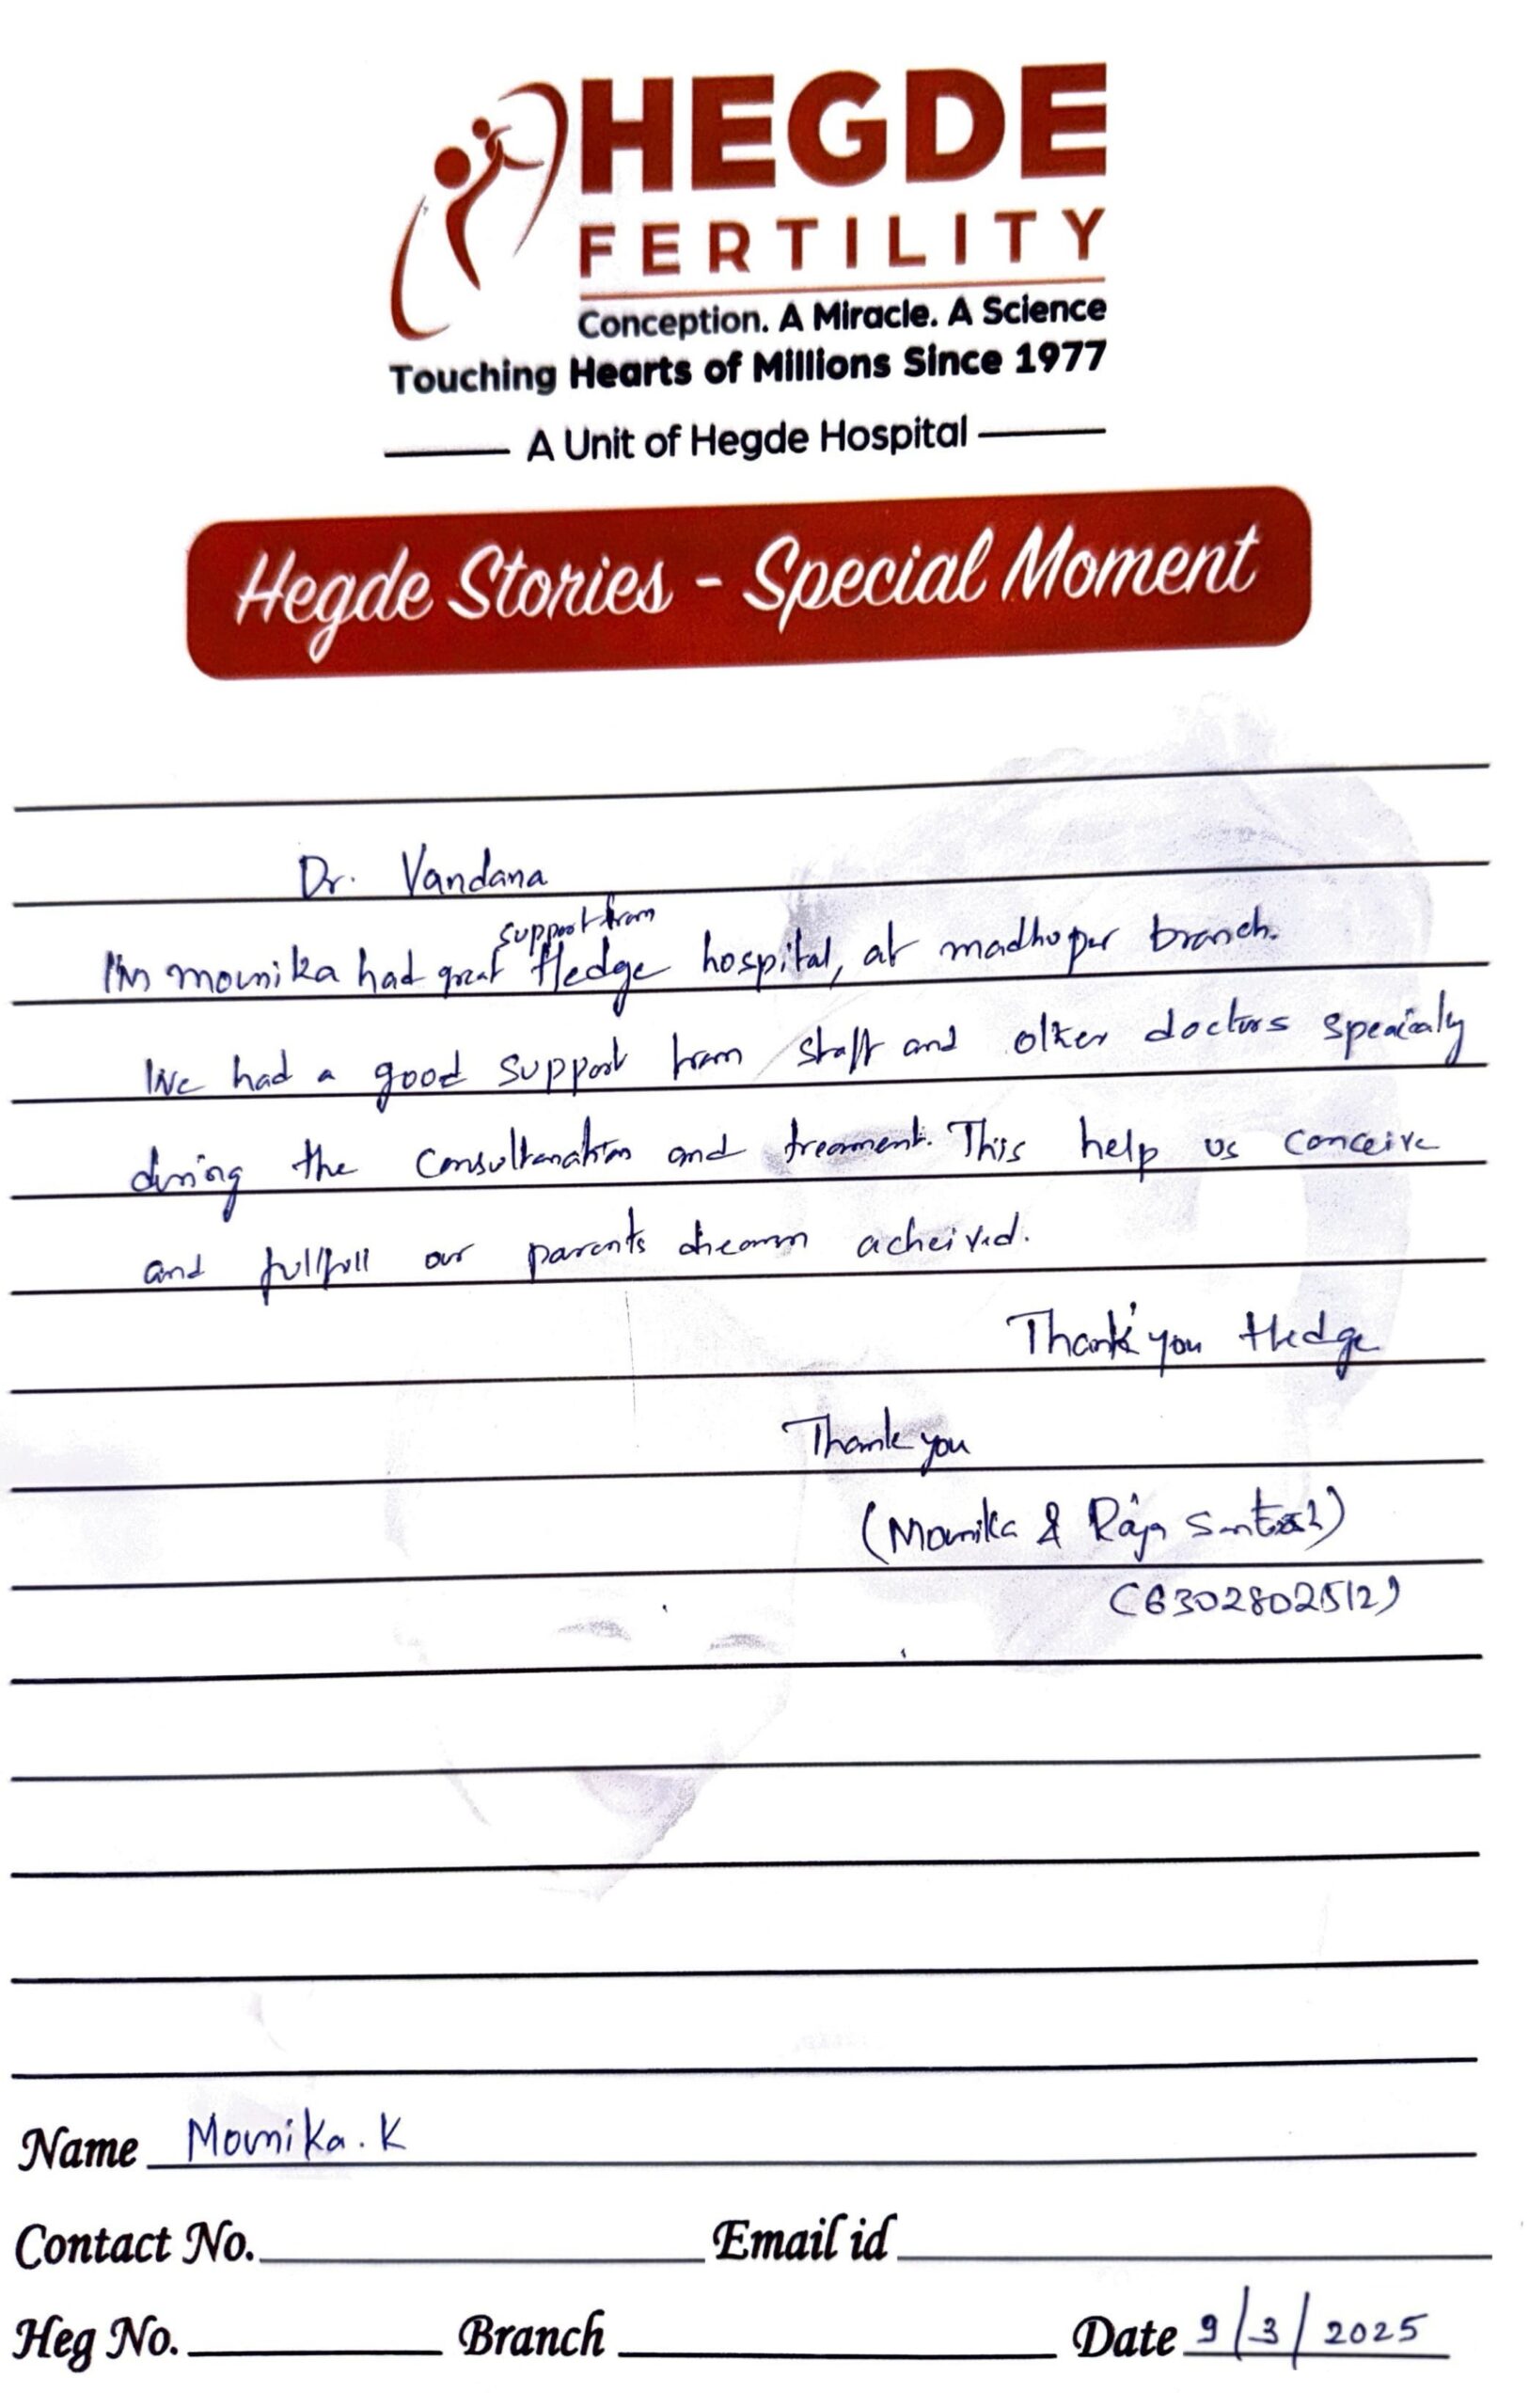 HEGDE
FERTILITY
Conception. A Miracle. A Science
Touching Hearts of Millions Since 1977
A Unit of Hegde Hospital
Hegde Stories - Special Moment
Dr. Vandana
support from
I'm mounika had great Hedge hospital, at madhapur branch.
We had a good support from staff and other doctors specialy
during the consultanation and treament. This help us conceive
and fullfill our parents dream acheived.
Thank you Hedge
Thank you
(Mounika & Raja Santosh)
(6302802512)
Name Mounika. K
Contact No. Email id
Heg No. Branch Date 9/3/2025